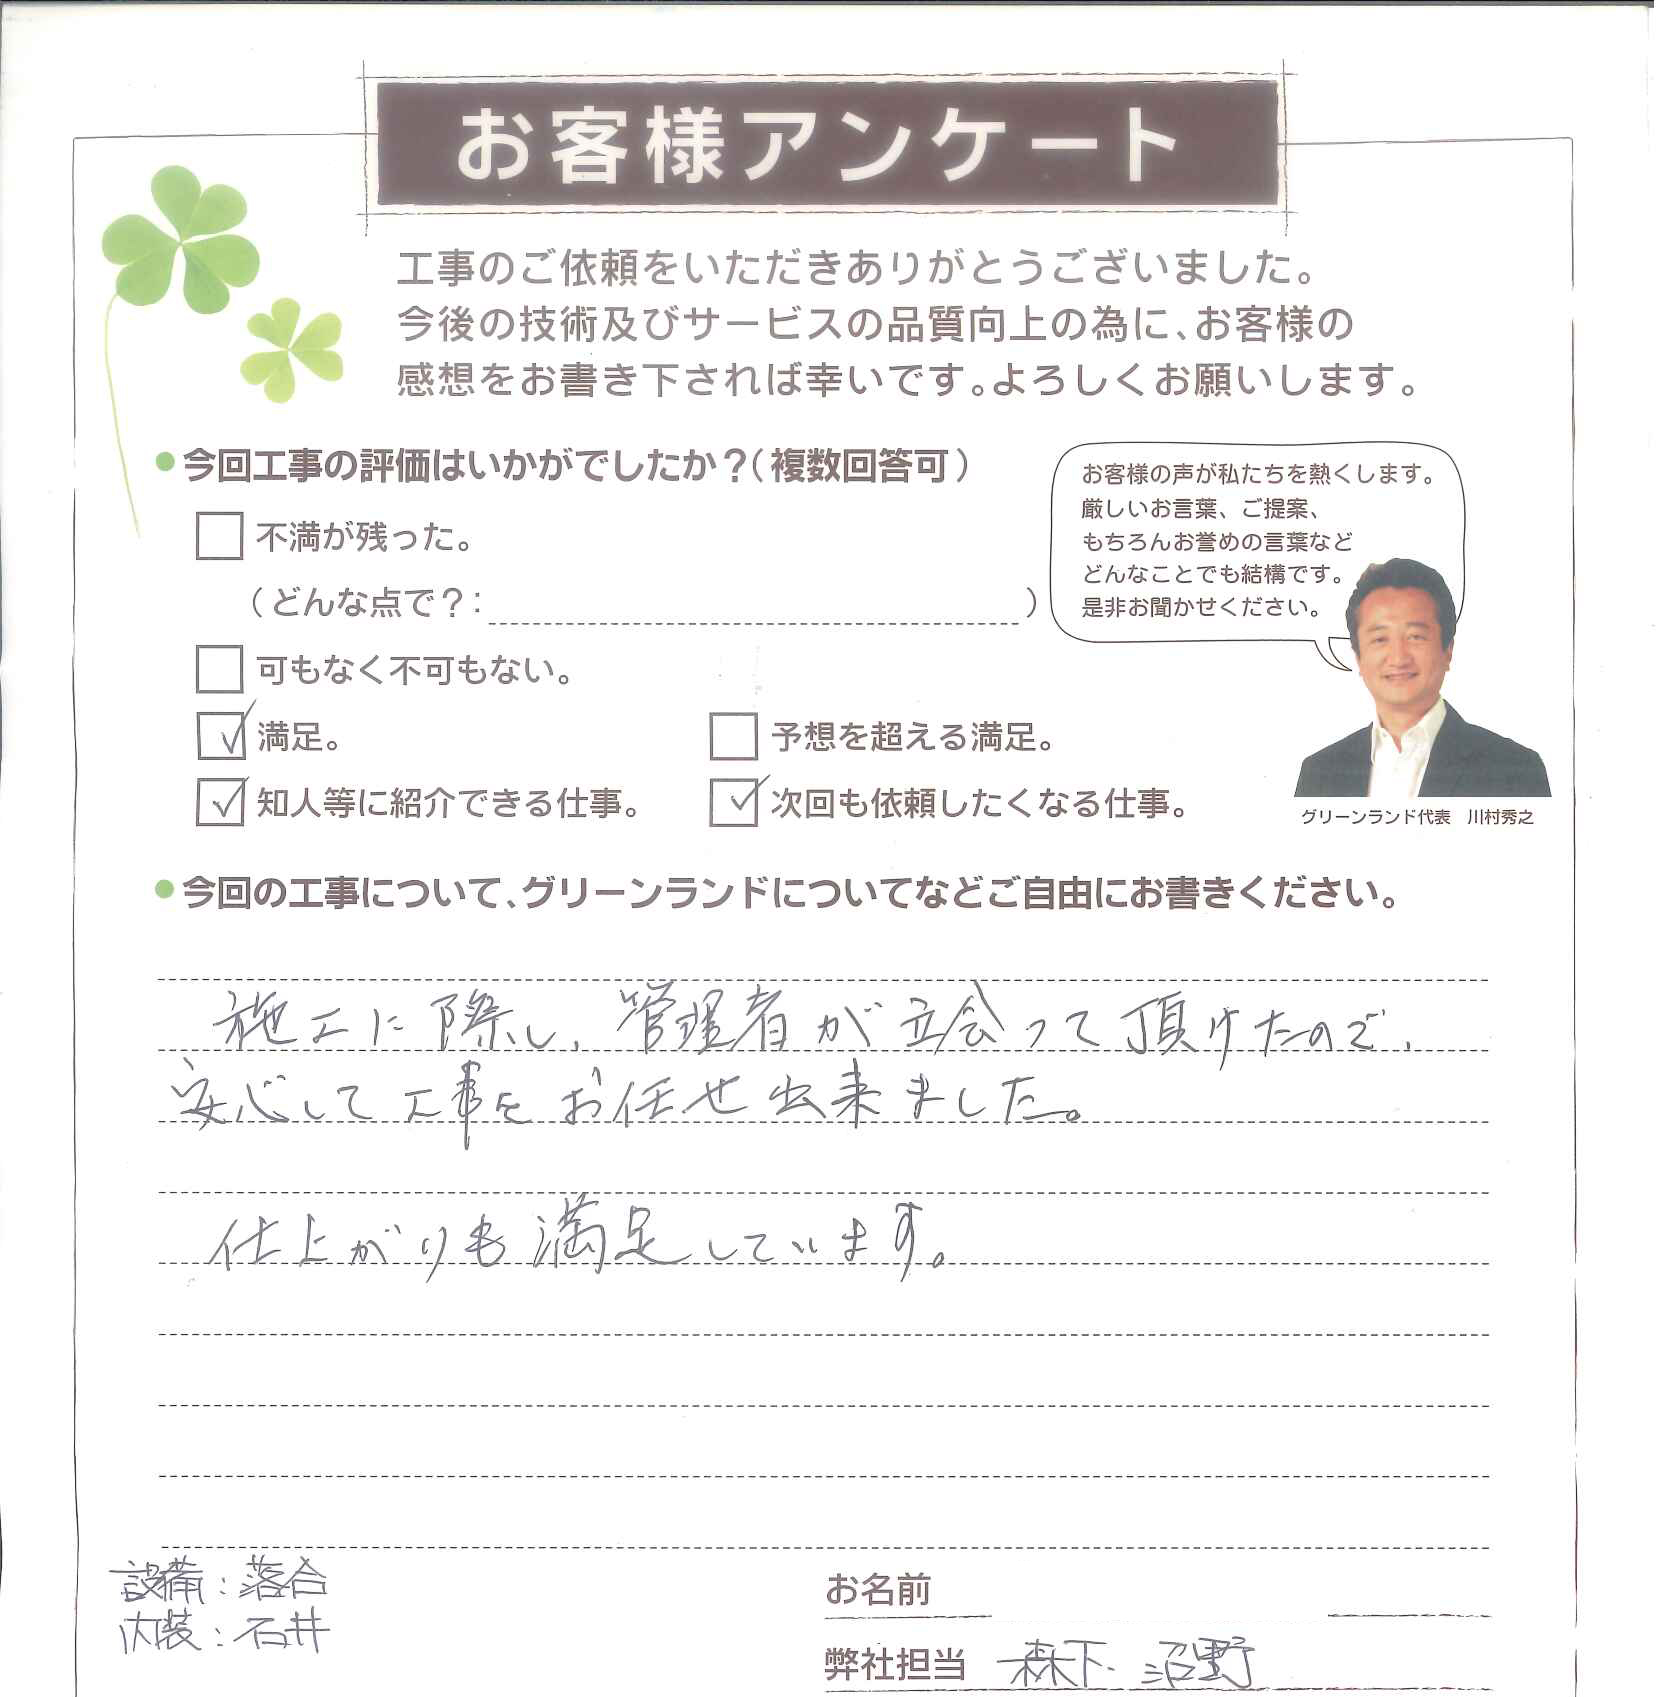 お客様アンケート
工事のご依頼をいただきありがとうございました。
今後の技術及びサービスの品質向上の為に、お客様の
感想をお書き下されば幸いです。よろしくお願いします。
●今回工事の評価はいかがでしたか？（複数回答可）
不満が残った。
（どんな点で？：　）
可もなく不可もない。
満足。
予想を超える満足。
知人等に紹介できる仕事。
次回も依頼したくなる仕事。
お客様の声が私たちを熱くします。
厳しいお言葉、ご提案、
もちろんお誉めの言葉など
どんなことでも結構です。
是非お聞かせください。
グリーンランド代表　川村秀之
●今回の工事について、グリーンランドについてなどご自由にお書きください。
施工に際し、管理者が立会って頂けたので、
安心して工事をお任せ出来ました。
仕上がりも満足しています。
設備：落合
内装：石井
お名前
弊社担当　森下、沼野